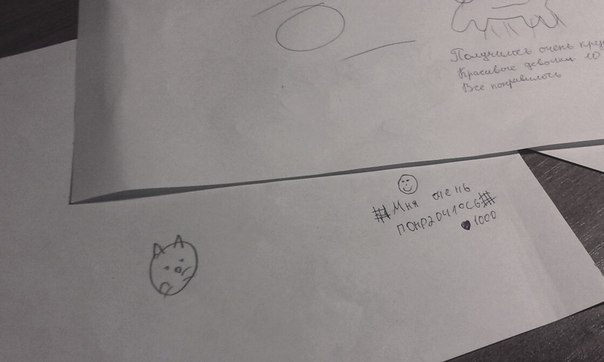 Получилось очень
Красивые девочки 10
Все понравилось
#Мня очень
понра04лось#
1000